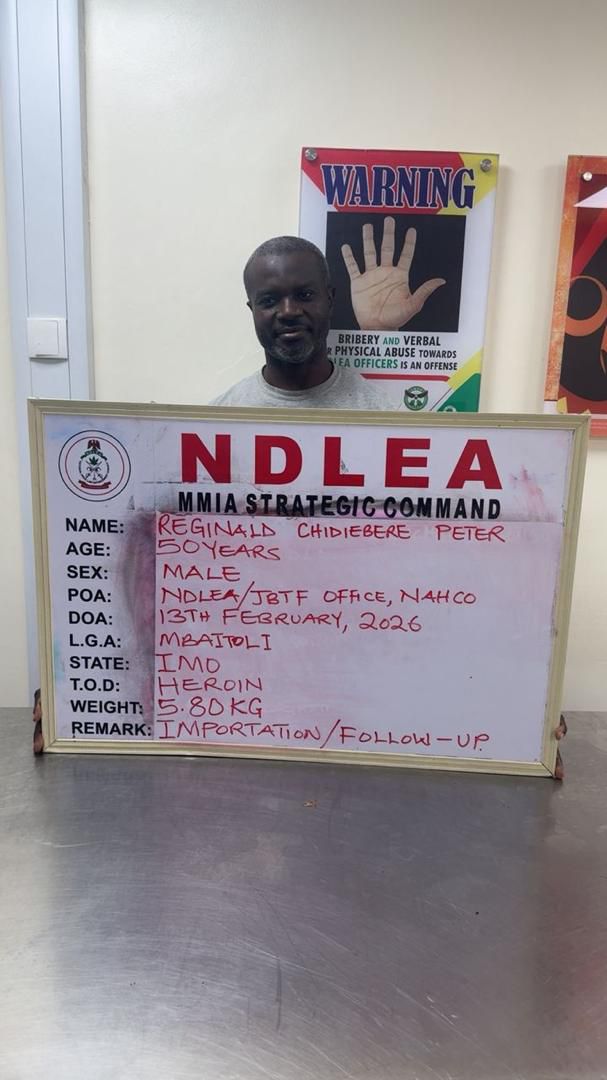 WARNING
BRIBERY AND VERBAL
PHYSICAL ABUSE TOWARDS
OFFICERS IS AN OFFENSE
NDLEA
MMIA STRATEGIC COMMAND
NAME: REGINALD CHIDIEBERE PETER
AGE: 50 YEARS
SEX: MALE
POA: NDLEA/JBTF OFFICE, NAHCO
DOA: 13TH FEBRUARY, 2026
L.G.A: MBAITOLI
STATE: IMO
T.O.D: HEROIN
WEIGHT: 5.80 KG
REMARK: IMPORTATION/FOLLOW-UP.